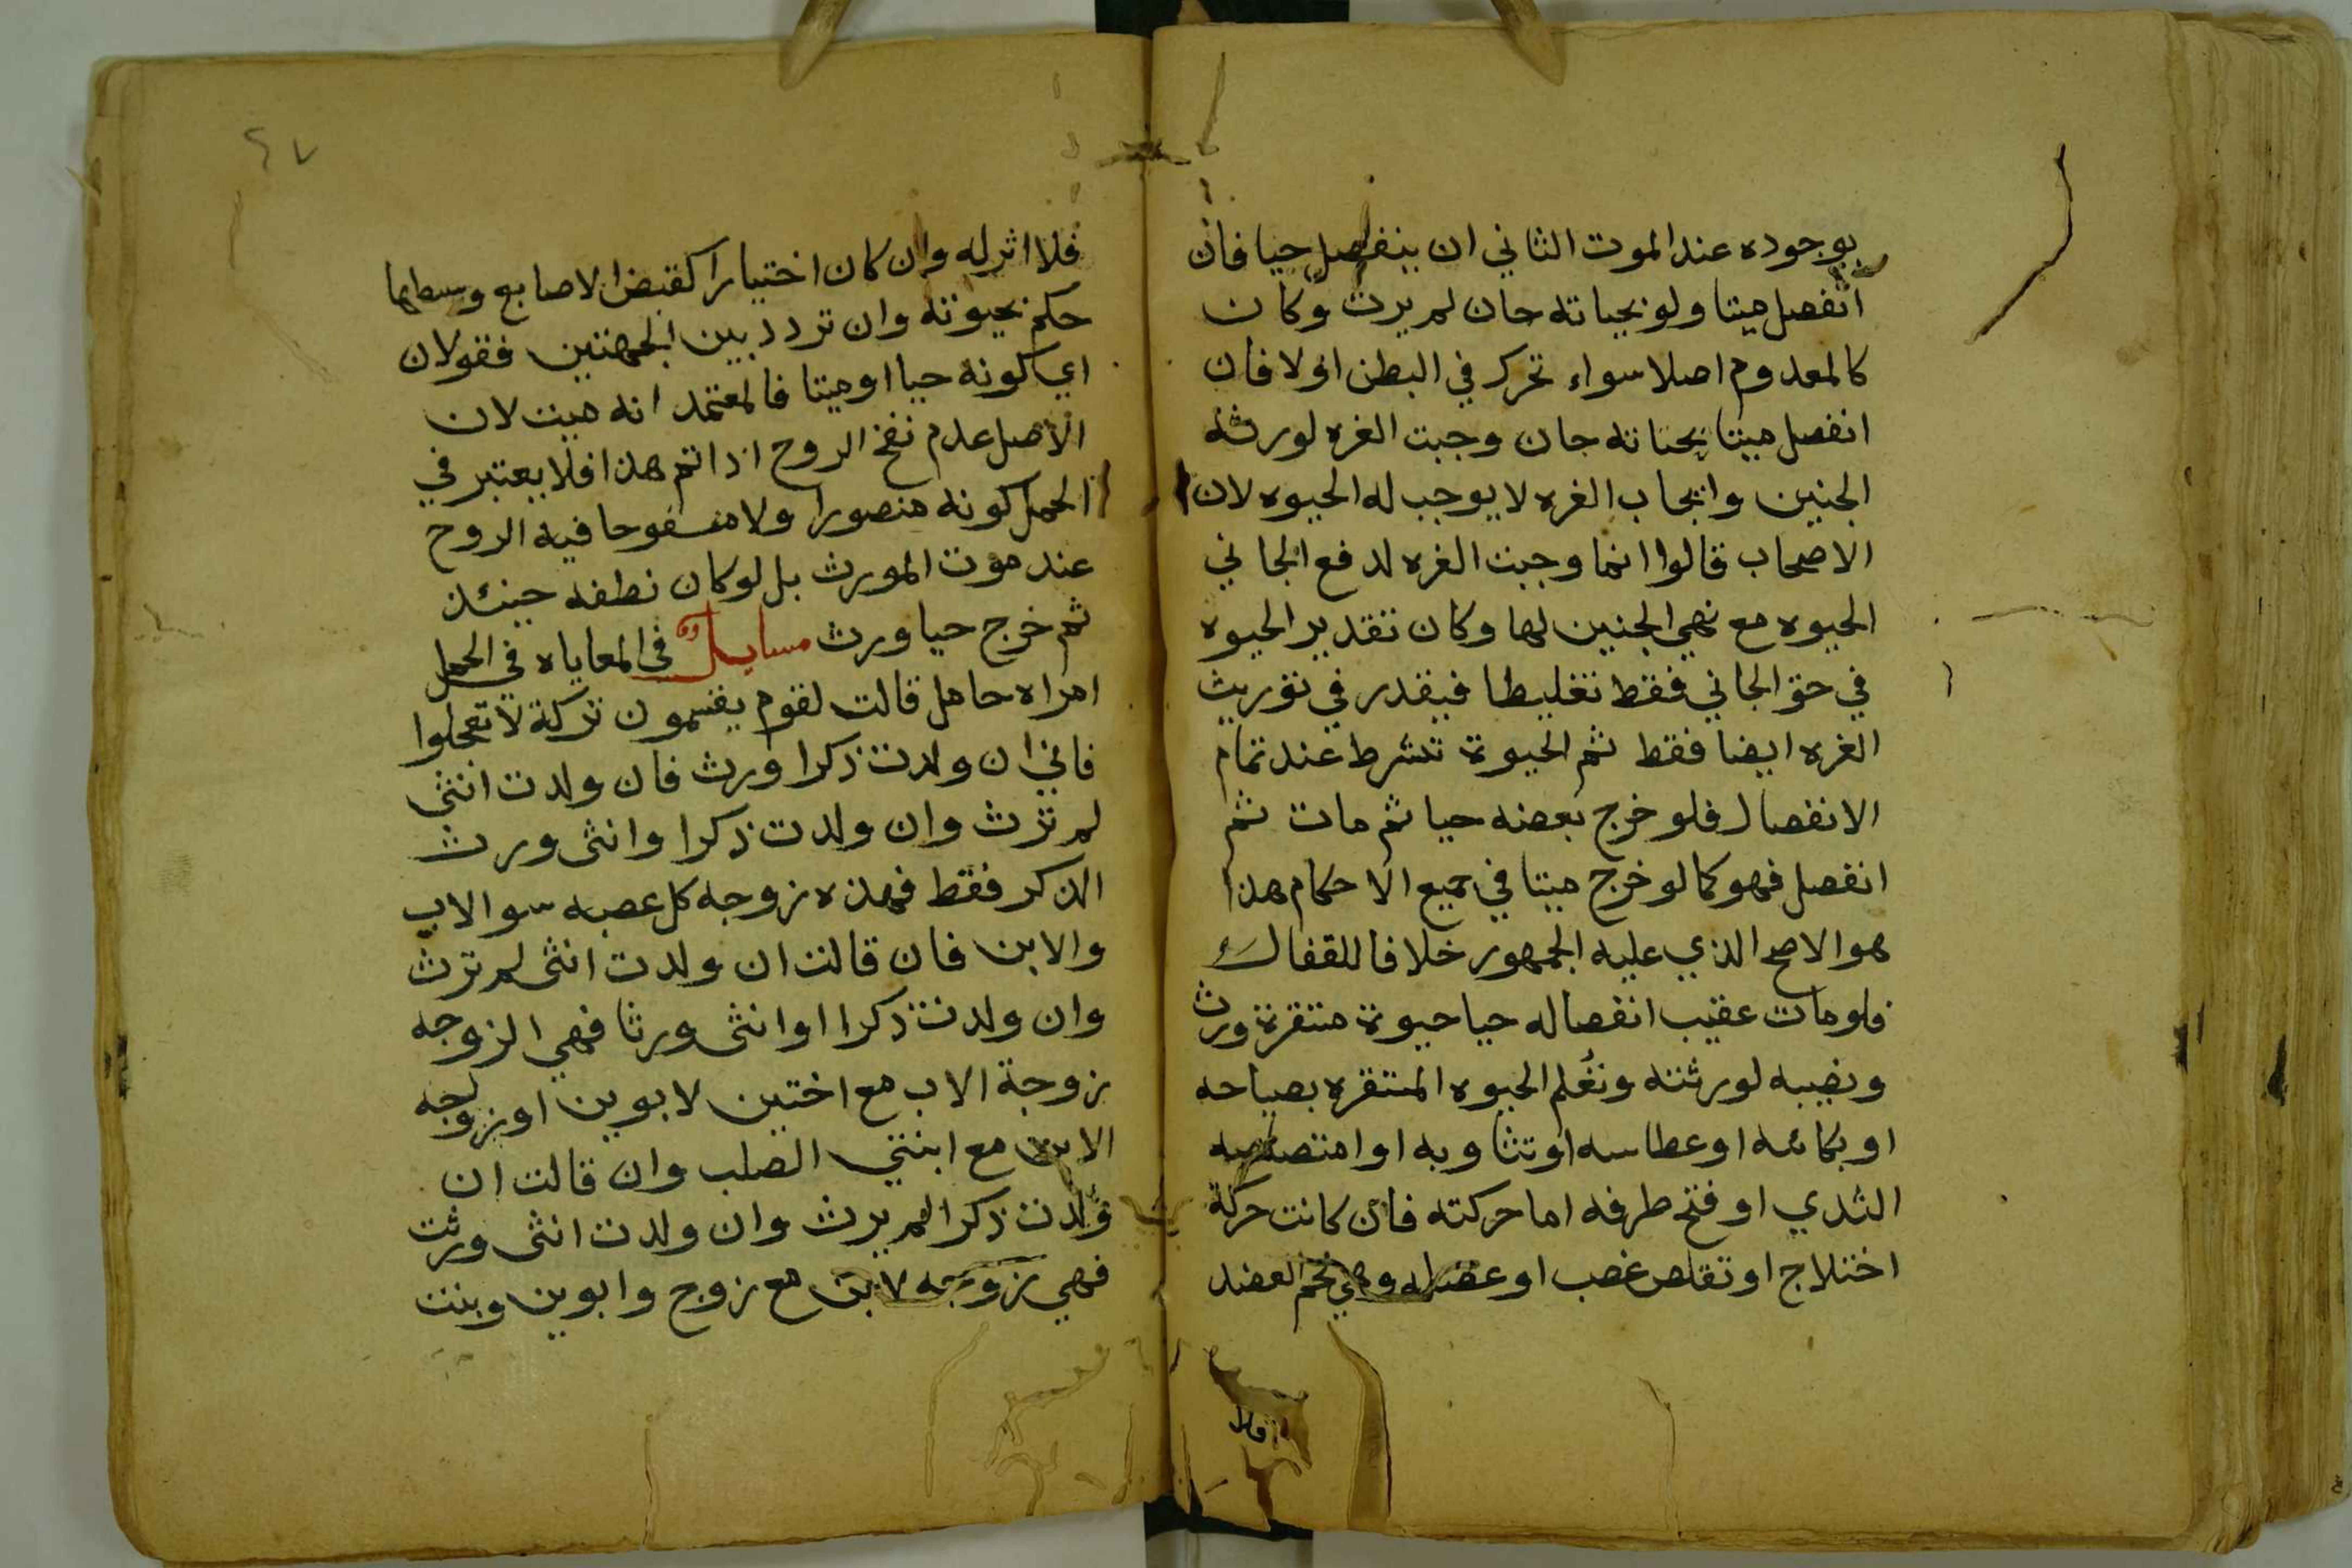 بوجوده عند الموت الثاني ان ينفصل حيا فان
انفصل ميتا ولو بجناية جان لم يرث وكان
كالمعدوم اصلا سواء تحرك في البطن اولا فان
انفصل ميتا بجناية جان وجبت الغره لورثة
الجنين وايجاب الغره لا يوجب له الحيوه لان
الاصحاب قالوا انما وجبت الغره لدفع الجاني
الحيوه مع نهي الجنين لها وكان تقدير الحيوه
في حق الجاني فقط تغليظا فيقدر في توريث
الغره ايضا فقط ثم الحيوة تشرط عند تمام
الانفصال فلو خرج بعضه حيا ثم مات ثم
انفصل فهو كما لو خرج ميتا في جميع الاحكام هذا
هو الاصح الذي عليه الجمهور خلافا للقفال
فلو مات عقيب انفصاله حيا حيوة مستقرة ورث
ونصيبه لورثته وتعلم الحيوه المستقره بصياحه
او بكائه او عطاسه او تثاوبه او امتصاصه
الثدي او فتح طرفه اما حركته فان كانت حركة
اختلاج او تقلص عصب او عضله وهي لحم العضد
فلا
٤٧
فلا اثر له وان كان اختيارا كقبض الاصابع وبسطها
حكم بحيوته وان تردد بين الجهتين فقولان
اي كونه حيا او ميتا فالمعتمد انه ميت لان
الاصل عدم نفخ الروح اذا تم هذا فلا يعتبر في
الحمل كونه متصورا ولا منفوخا فيه الروح
عند موت المورث بل لو كان نطفه حينئذ
ثم خرج حيا ورث مسايل في المعاياه في الحمل
امراه حامل قالت لقوم يقسمون تركة لا تعجلوا
فاني ان ولدت ذكرا ورث فان ولدت انثى
لم ترث وان ولدت ذكرا وانثى ورث
الذكر فقط فهذه زوجه كل عصبه سوا الاب
والابن فان قالت ان ولدت انثى لم ترث
وان ولدت ذكرا او انثى ورثا فهي الزوجه
زوجة الاب مع اختين لابوين او زوجه
الابن مع ابنتي الصلب وان قالت ان
ولدت ذكرا لم يرث وان ولدت انثى ورثت
فهي زوجه ابن مع زوج وابوين وبنت